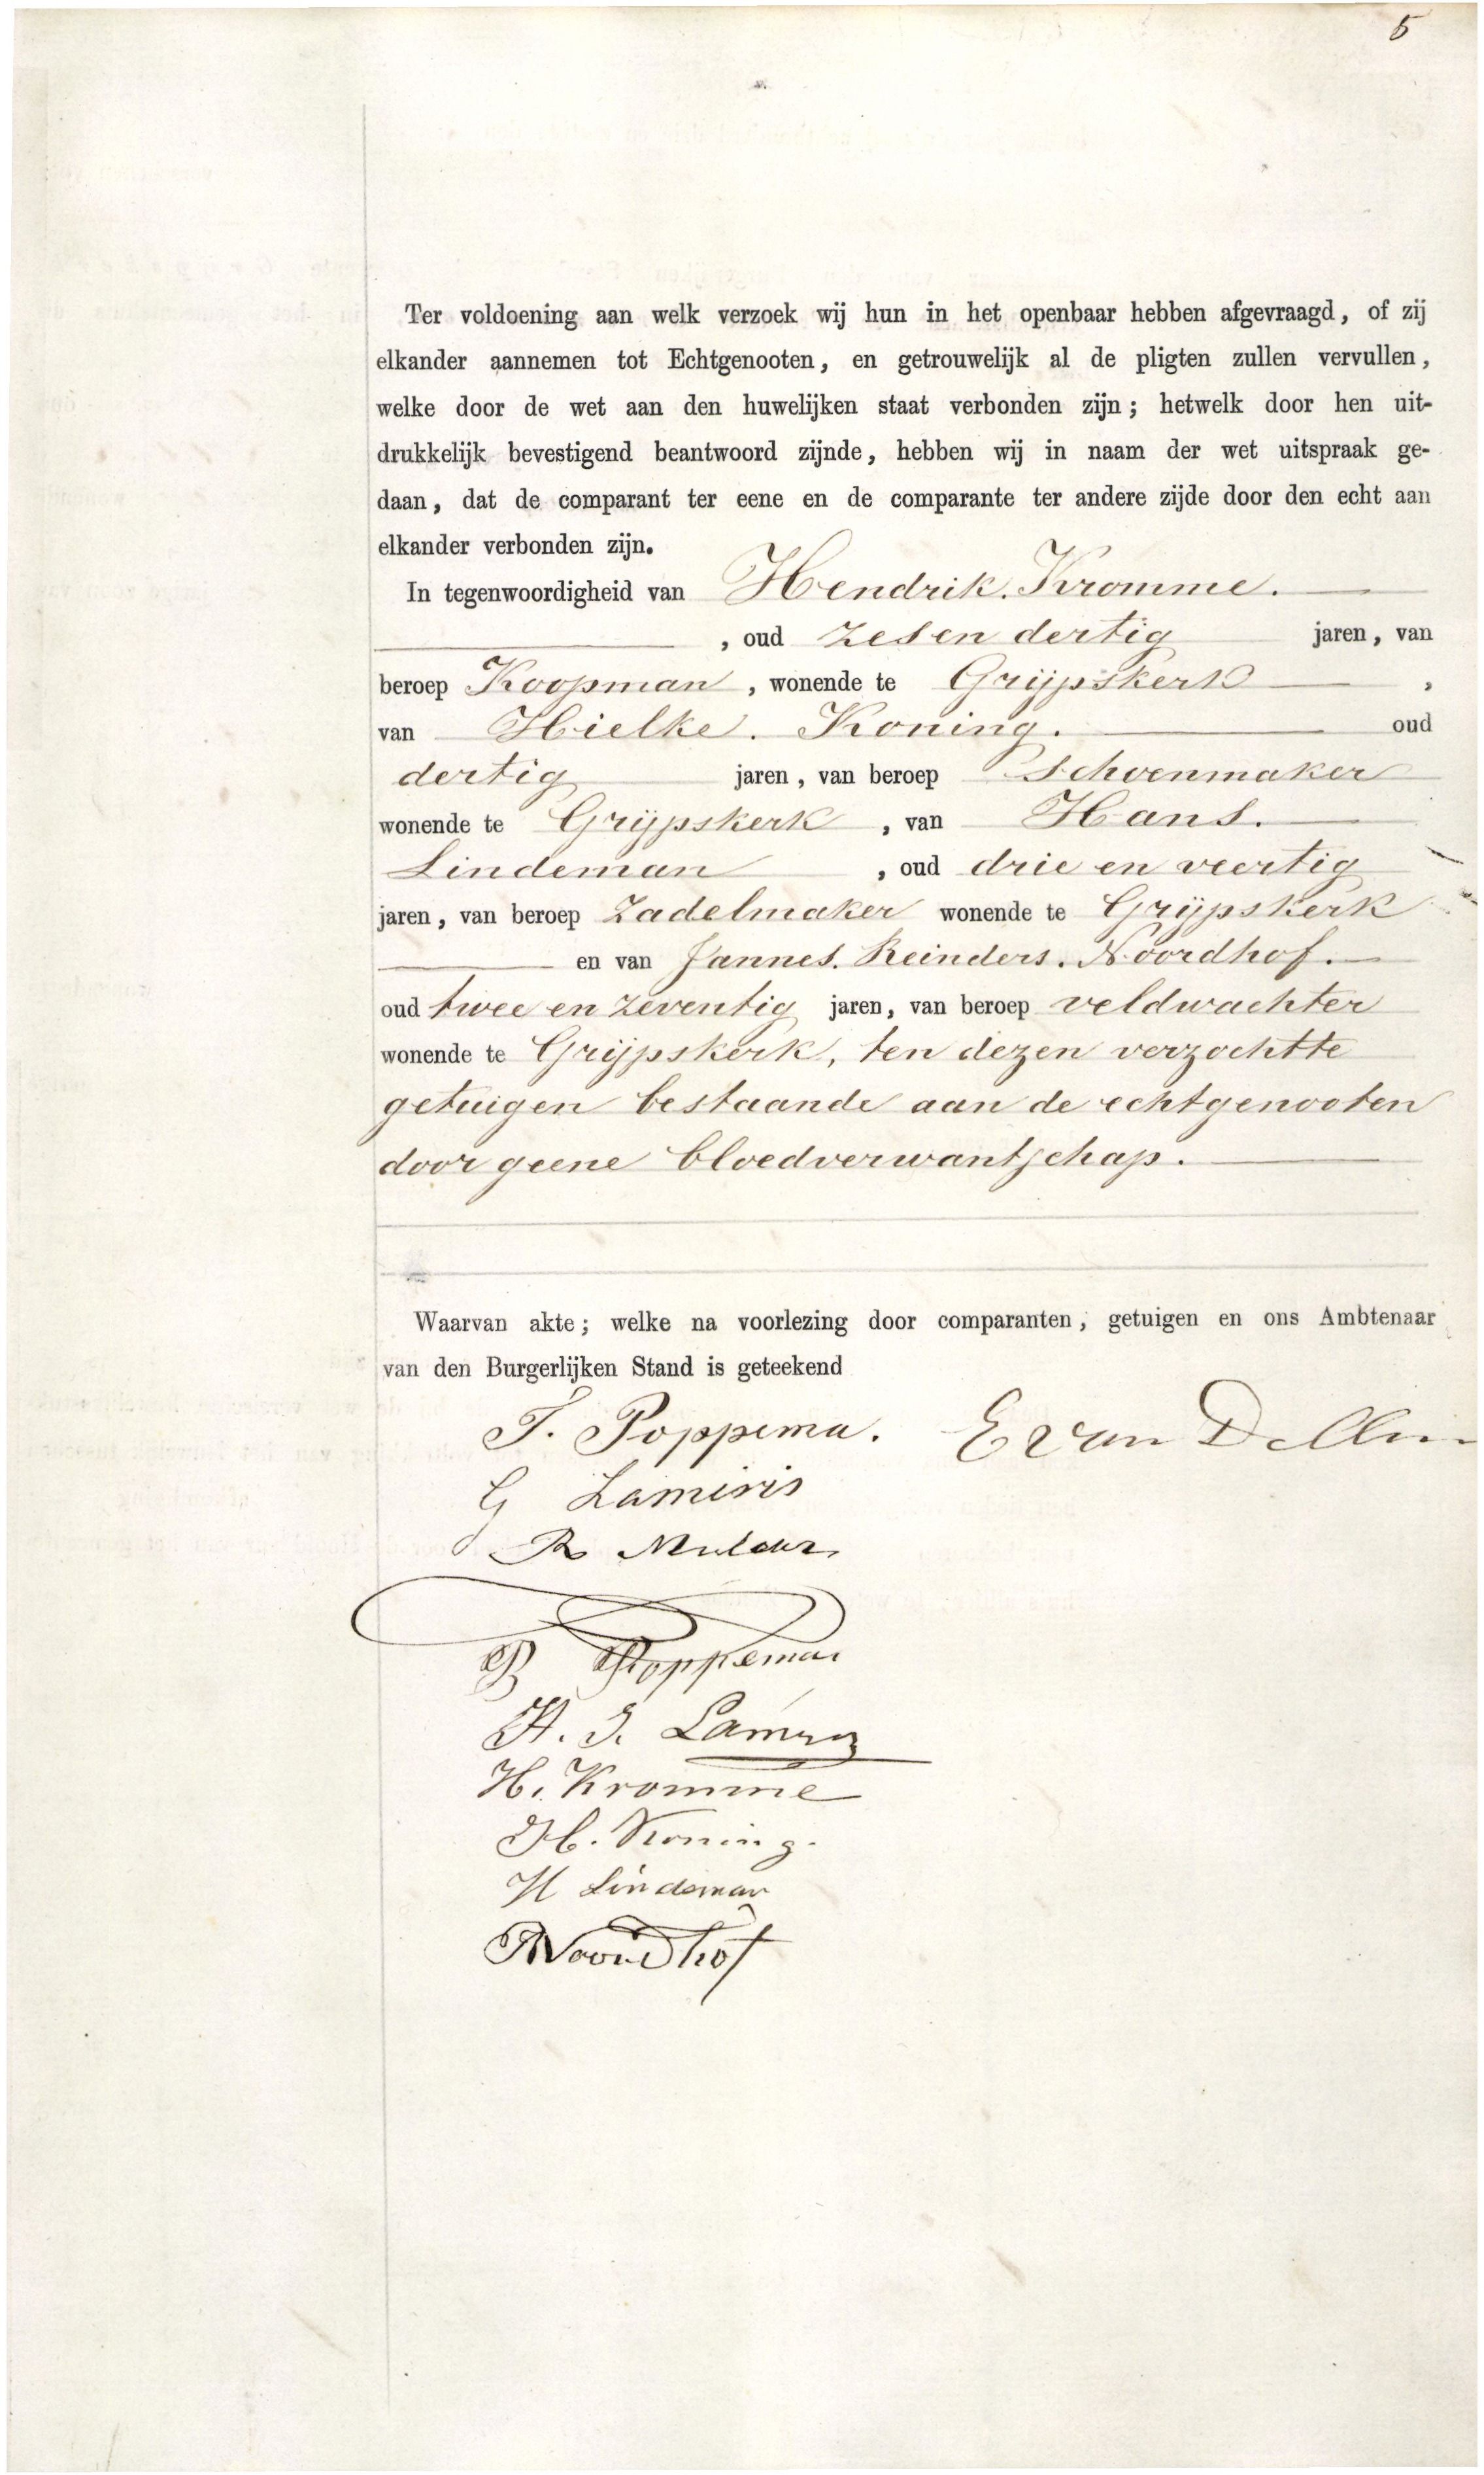 5
Ter voldoening aan welk verzoek wij hun in het openbaar hebben afgevraagd, of zij
elkander aannemen tot Echtgenooten, en getrouwelijk al de pligten zullen vervullen,
welke door de wet aan den huwelijken staat verbonden zijn; hetwelk door hen uit-
drukkelijk bevestigend beantwoord zijnde, hebben wij in naam der wet uitspraak ge-
daan, dat de comparant ter eene en de comparante ter andere zijde door den echt aan
elkander verbonden zijn.
In tegenwoordigheid van Hendrik. Kromme.
, oud zes en dertig jaren, van
beroep Koopman, wonende te Grijpskerk ,
van Hielke. Koning. oud
dertig jaren, van beroep Schoenmaker
wonende te Grijpskerk, van Hans.
Lindeman, oud drie en veertig
jaren, van beroep Zadelmaker wonende te Grijpskerk
en van Jannes. Reinders. Noordhof.
oud twee en zeventig jaren, van beroep veldwachter
wonende te Grijpskerk, ten dezen verzochtte
getuigen bestaande aan de echtgenooten
door geene bloedverwantschap.
Waarvan akte; welke na voorlezing door comparanten, getuigen en ons Ambtenaar
van den Burgerlijken Stand is geteekend
T. Poppema. E van Dellen
G Lameris
R Mulder
P Poppema
H. J. Lameris
H. Kromme
H. Koning.
H Lindeman
Noordhof